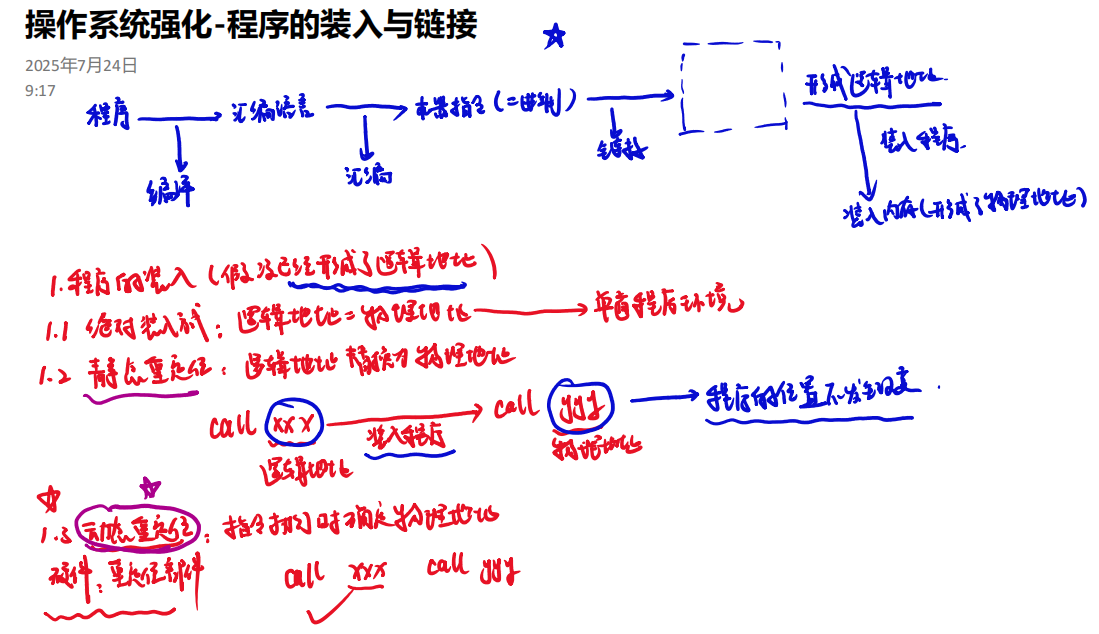 操作系统强化-程序的装入与链接
2025年7月24日
9:17
程序 汇编语言 机器指令(二进制) 形成逻辑地址
编译 汇编 链接 装入程序
装入内存(形成了物理地址)
1.程序的装入(假设已经形成了逻辑地址)
1.1 绝对装入方式:逻辑地址=物理地址 单道程序环境
1.2 静态重定位:逻辑地址 转换为 物理地址
call xxx 装入程序 call yyy 程序的位置不发生改变.
逻辑地址 物理地址
1.3 动态重定位:指令执行时确定物理地址
硬件:重定位部件 call xxx call yyy